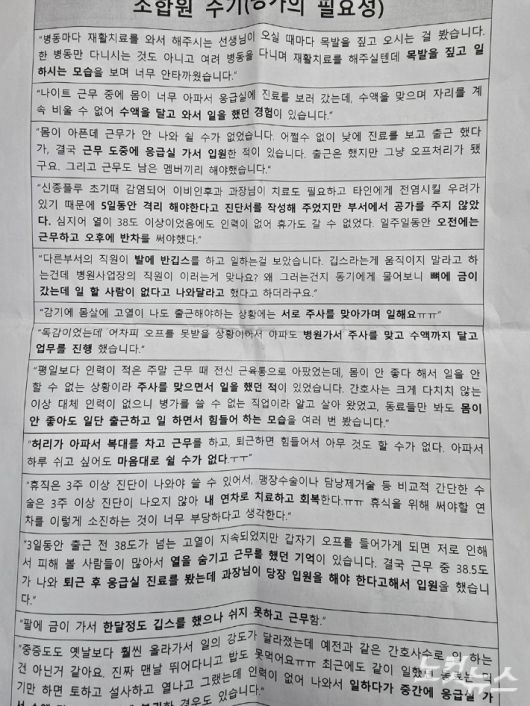 조합원 수기(병가의 필요성)
"병동마다 재활치료를 와서 해주시는 선생님이 오실 때마다 목발을 짚고 오시는 걸 봤습니다.
한 병동만 다니시는 것도 아니고 여러 병동을 다니며 재활치료를 해주실텐데 목발을 짚고 일
하시는 모습을 보며 너무 안타까웠습니다."
"나이트 근무 중에 몸이 너무 아파서 응급실에 진료를 보러 갔는데, 수액을 맞으며 자리를 계
속 비울 수 없어 수액을 달고 와서 일을 했던 경험이 있습니다."
"몸이 아픈데 근무가 안 나와 쉴 수가 없었습니다. 어쩔수 없이 낮에 진료를 보고 출근 했다
가, 결국 근무 도중에 응급실 가서 입원한 적이 있습니다. 출근은 했지만 그냥 오프처리가 됐
구요. 그리고 근무도 남은 멤버끼리 해야했습니다."
"신종플루 초기때 감염되어 이비인후과 과장님이 치료도 필요하고 타인에게 전염시킬 우려가
있기 때문에 5일동안 격리 해야한다고 진단서를 작성해 주었지만 부서에서 공가를 주지 않았
다. 심지어 열이 38도 이상이었음에도 인력이 없어 휴가도 갈 수 없었다. 일주일동안 오전에는
근무하고 오후에 반차를 써야했다."
"다른부서의 직원이 발에 반깁스를 하고 일하는걸 보았습니다. 깁스라는게 움직이지 말라고 하
는건데 병원사업장의 직원이 이러는게 맞나요? 왜 그러는건지 동기에게 물어보니 뼈에 금이
갔는데 일 할 사람이 없다고 나와달라고 했다고 하더라구요."
"감기에 몸살에 고열이 나도 출근해야하는 상황에는 서로 주사를 맞아가며 일해요ㅠㅠ"
"독감이었는데 어차피 오프를 못받을 상황이어서 아파도 병원가서 주사를 맞고 수액까지 달고
업무를 진행 했습니다."
"평일보다 인력이 적은 주말 근무 때 전신 근육통으로 아팠었는데, 몸이 안 좋다 해서 일을 안
할 수 없는 상황이라 주사를 맞으면서 일을 했던 적이 있었습니다. 간호사는 크게 다치지 않는
이상 대체 인력이 없으니 병가를 쓸 수 없는 직업이라 알고 살아 왔었고, 동료들만 봐도 몸이
안 좋아도 일단 출근하고 일 하면서 힘들어 하는 모습을 여러 번 봤습니다."
"허리가 아파서 복대를 차고 근무를 하고, 퇴근하면 힘들어서 아무 것도 할 수가 없다. 아파서
하루 쉬고 싶어도 마음대로 쉴 수가 없다.ㅜㅜ"
"휴직은 3주 이상 진단이 나와야 쓸 수 있어서, 맹장수술이나 담낭제거술 등 비교적 간단한 수
술은 3주 이상 진단이 나오지 않아 내 연차로 치료하고 회복한다.ㅠㅠ 휴식을 위해 써야할 연
차를 이렇게 소진하는 것이 너무 부당하다고 생각한다."
"3일동안 출근 전 38도가 넘는 고열이 지속되었지만 갑자기 오프를 들어가게 되면 저로 인해
서 피해 볼 사람들이 많아서 열을 숨기고 근무를 했던 기억이 있습니다. 결국 근무 중 38.5도
가 나와 퇴근 후 응급실 진료를 봤는데 과장님이 당장 입원을 해야 한다고해서 입원을 했습니
다."
"팔에 금이 가서 한달정도 깁스를 했으나 쉬지 못하고 근무함."
"중증도도 옛날보다 훨씬 올라가서 일의 강도가 달라졌는데 예전과 같은 간호사수로 일 하는
건 아닌거 같아요. 진짜 맨날 뛰어다니고 밥도 못먹어요ㅠㅠ 최근에도 같이 일했
기만 하면 토하고 설사하고 열나고 그랬는데 인력이 없어 나와서 일하다가 중간에 응급실 가
경우도 있습니다."
노컷뉴스